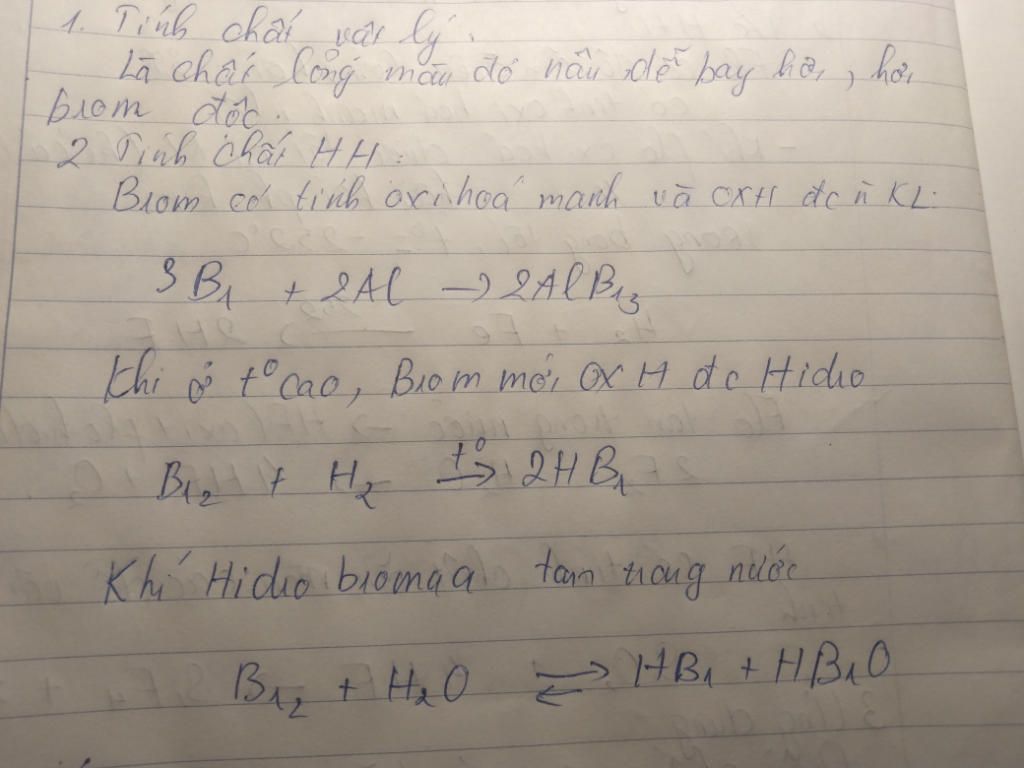 1. Tính chất vật lý.
Là chất lỏng màu đỏ nâu, dễ bay hơi, hơi
brom độc.
2 Tính chất HH:
Brom có tính oxi hoá mạnh và OXH đc ñ KL.
3Br + 2Al → 2AlBr3
Khi ở t° cao, Brom mới OXH đc Hidro
Br2 + H2 t°→ 2HBr
Khí Hidro bromua tan trong nước
Br2 + H2O ⇌ HBr + HBrO